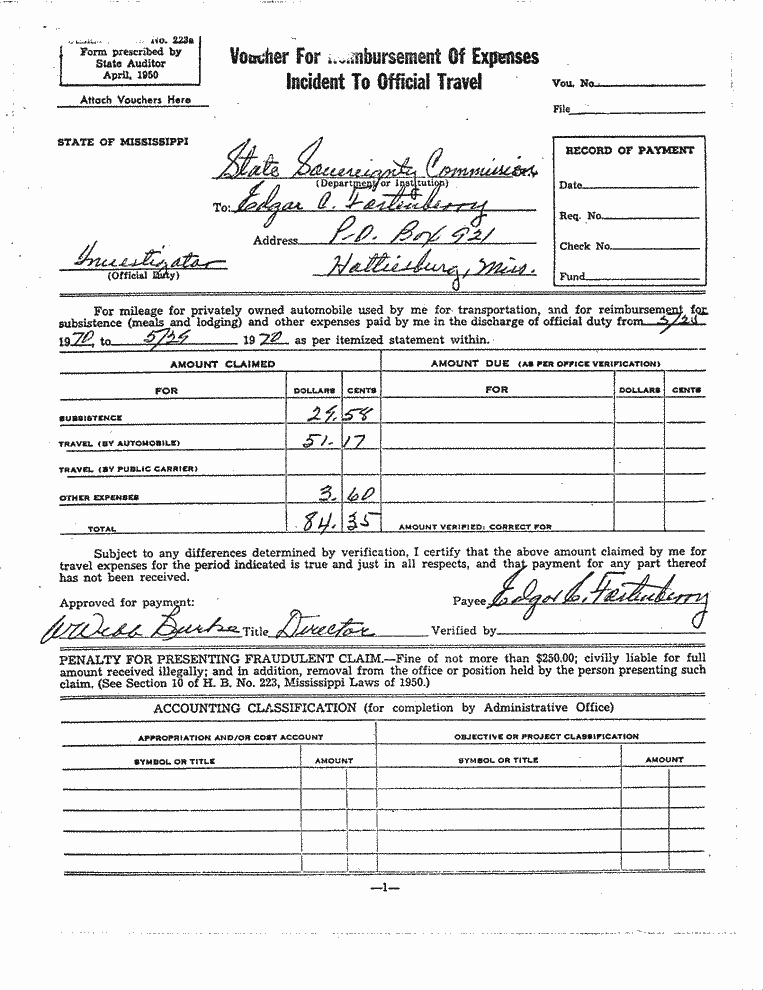 No. 223a
Form prescribed by
State Auditor
April, 1950
Attach Vouchers Here
Voucher For Reimbursement Of Expenses
Incident To Official Travel
Vou. No.
File
STATE OF MISSISSIPPI
State Sovereignty Commission
(Department or Institution)
To: Edgar C. Fortenberry
Address P.O. Box 921
Hattiesburg, Miss.
Investigator
(Official Duty)
RECORD OF PAYMENT
Date
Req. No.
Check No.
Fund
For mileage for privately owned automobile used by me for transportation, and for reimbursement for
subsistence (meals and lodging) and other expenses paid by me in the discharge of official duty from
1970, to 5/29 1970 as per itemized statement within.
AMOUNT CLAIMED AMOUNT DUE (AS PER OFFICE VERIFICATION)
FOR DOLLARS CENTS FOR DOLLARS CENTS
SUBSISTENCE 29.58
TRAVEL (BY AUTOMOBILE) 51.17
TRAVEL (BY PUBLIC CARRIER)
OTHER EXPENSES 3.60
TOTAL 84.35 AMOUNT VERIFIED: CORRECT FOR
Subject to any differences determined by verification, I certify that the above amount claimed by me for
travel expenses for the period indicated is true and just in all respects, and that payment for any part thereof
has not been received.
Approved for payment: Payee Edgar C. Fortenberry
W Webb Burke Title Director Verified by
PENALTY FOR PRESENTING FRAUDULENT CLAIM.—Fine of not more than $250.00; civilly liable for full
amount received illegally; and in addition, removal from the office or position held by the person presenting such
claim. (See Section 10 of H. B. No. 223, Mississippi Laws of 1950.)
ACCOUNTING CLASSIFICATION (for completion by Administrative Office)
APPROPRIATION AND/OR COST ACCOUNT OBJECTIVE OR PROJECT CLASSIFICATION
SYMBOL OR TITLE AMOUNT SYMBOL OR TITLE AMOUNT
—1—